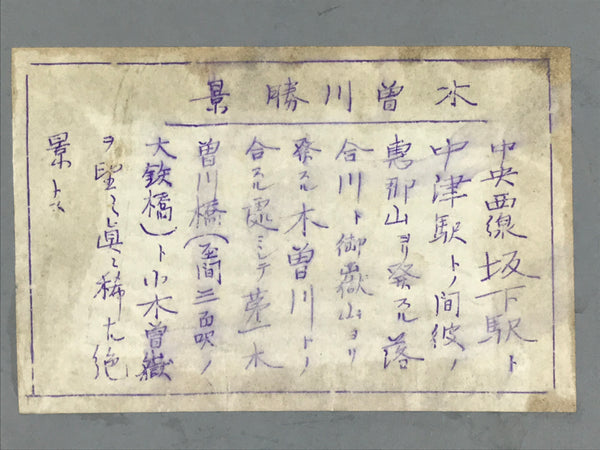 木曽川勝景
中央西線坂下駅ト
中津駅トノ間彼ノ
恵那山ヨリ発スル落
合川ト御嶽山ヨリ
発スル木曽川トノ
合スル處ニシテ第一木
曽川橋(至間三百呎ノ
大鉄橋)ト小木曽嶽
ヲ望ミ真ニ稀ナル絶
景トス